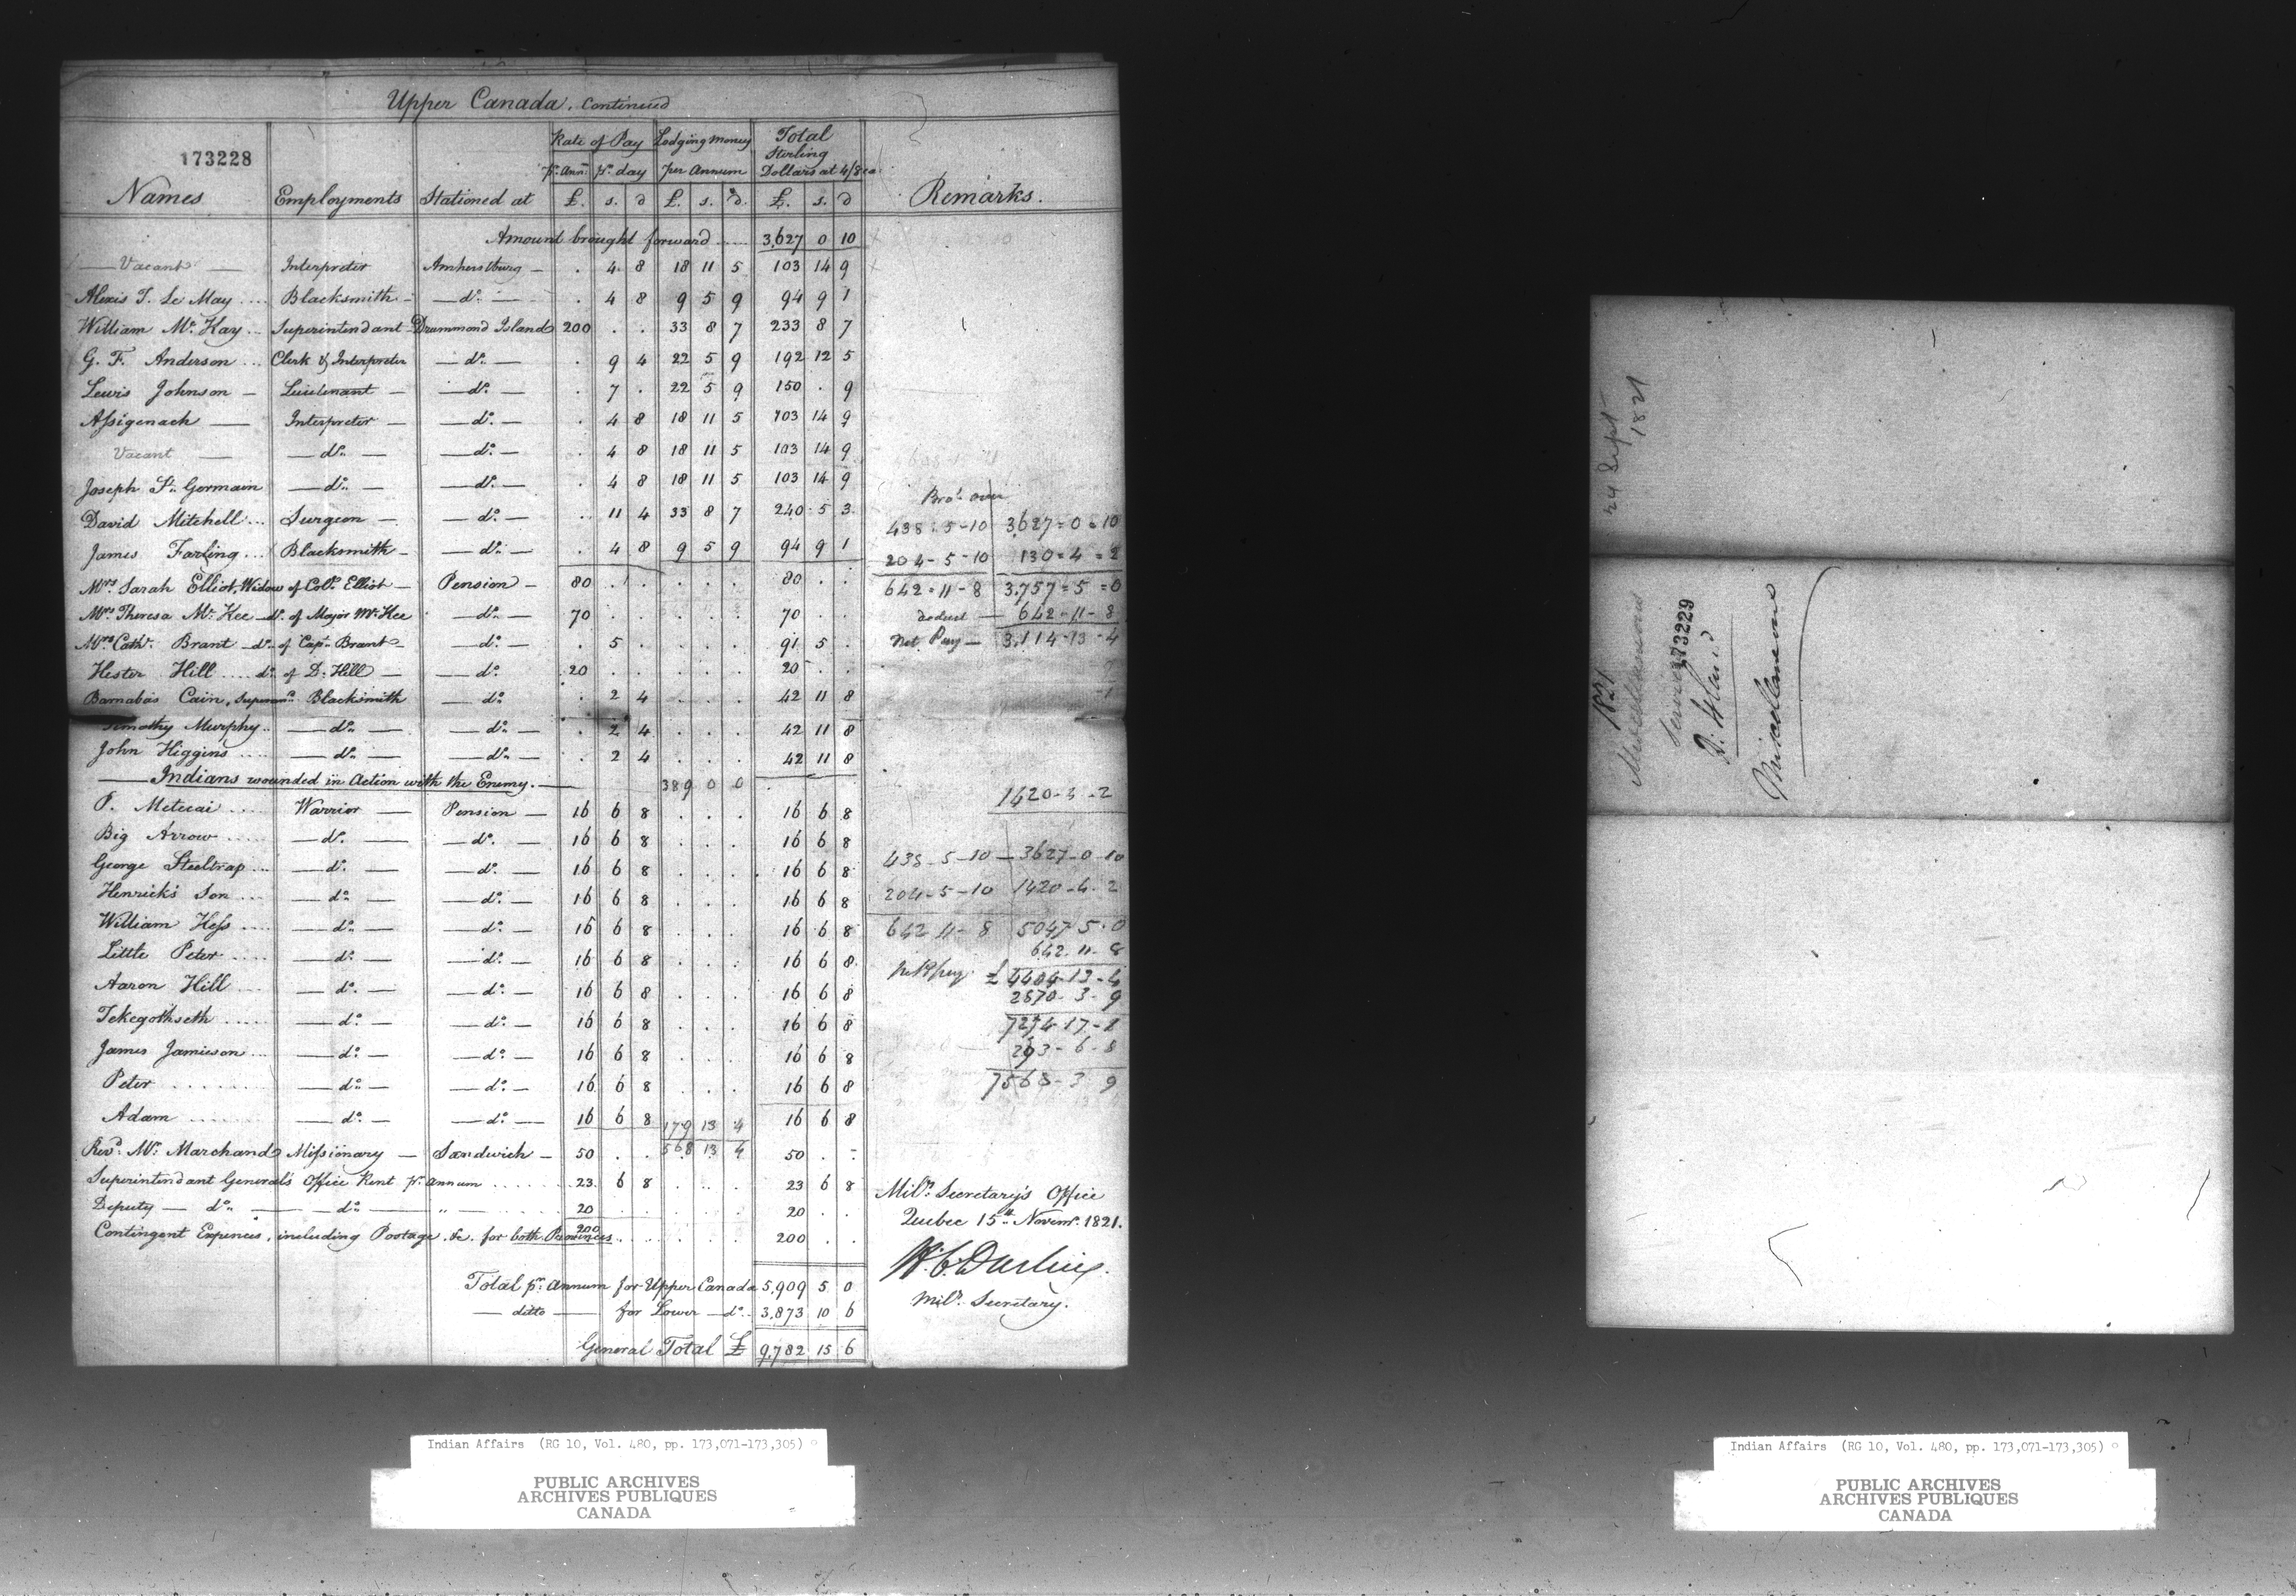 Upper Canada. Continued
173228
Rate of Pay Lodging Money Total
Sterling
pr. Ann: pr. day per Annum Dollars at 4/8 ea
Names Employments Stationed at £. s. d £. s. d. £. s. d Remarks.
Amount brought forward ..... 3,627 0 10
— Vacant — Interpreter Amherstburg — . 4 8 18 11 5 103 14 9
Alexis T. Le May .... Blacksmith — — do. — . 4 8 9 5 9 94 9 1
William Mc. Kay .. Superintendant Drummond Island 200 . . 33 8 7 233 8 7
G. F. Anderson ... Clerk & Interpreter — do. — . 9 4 22 5 9 192 12 5
Lewis Johnson — Lieutenant — — do. — . 7 . 22 5 9 150 . 9
Assigenach — Interpreter — — do. — . 4 8 18 11 5 103 14 9
Vacant — — do. — — do. — . 4 8 18 11 5 103 14 9
Joseph St. Germain — do. — — do. — . 4 8 18 11 5 103 14 9
David Mitchell ... Surgeon — — do. — . 11 4 33 8 7 240 5 3
James Farling ... Blacksmith — — do. — . 4 8 9 5 9 94 9 1
Mrs. Sarah Elliot, Widow of Col. Elliot — Pension — 80 . . . . . 80 . .
Mrs. Theresa Mc. Kee — do. of Major Mc. Kee — do. — 70 . . . . . 70 . .
Mrs. Cath. Brant — do. of Capt. Brant — — do. — . 5 . . . . 91 5 .
Hester Hill .... do. of D. Hill — — do. 20 . . . . . 20 . .
Barnabas Cain, Superann. Blacksmith — do. . 2 4 . . . 42 11 8
Timothy Murphy .. — do. — — do. — . 2 4 . . . 42 11 8
John Higgins .... — do. — — do. — . 2 4 . . . 42 11 8
— Indians wounded in Action with the Enemy. — 389 0 0
P. Metecai .... Warrior — Pension — 16 6 8 . . . 16 6 8
Big Arrow ..... — do. — — do. — 16 6 8 . . . 16 6 8
George Steeltrap ... — do. — — do. — 16 6 8 . . . 16 6 8
Henrick's Son ... — do. — — do. — 16 6 8 . . . 16 6 8
William Hess .... — do. — — do. — 16 6 8 . . . 16 6 8
Little Peter ..... — do. — — do. — 16 6 8 . . . 16 6 8
Aaron Hill .... — do. — — do. — 16 6 8 . . . 16 6 8
Tekegothseth ..... — do. — — do. — 16 6 8 . . . 16 6 8
James Jamieson ... — do. — — do. — 16 6 8 . . . 16 6 8
Peter ........ — do. — — do. — 16 6 8 . . . 16 6 8
Adam ....... — do. — — do. — 16 6 8 179 13 4 16 6 8
Revd. Mr. Marchand Missionary — Sandwich — 50 . . 568 13 4 50 . -
Superintendant General's Office Rent pr. annum ...... 23 6 8 . . . 23 6 8
Deputy — do. — do. — " — ...... 20 . . . . . 20 . .
Contingent Expences, including Postage &c. for both Provinces 200 ..... 200 . .
Total pr. Annum for Upper Canada 5,909 5 0
— ditto — for Lower — do. 3,873 10 6
General Total £ 9,782 15 6
Bro.t over
438 - 5 - 10 3,627 = 0 = 10
204 - 5 - 10 130 = 4 = 2
642 - 11 - 8 3,757 = 5 = 0
deduct — 642 - 11 - 8
Net Pay — 3,114 - 13 - 4
1420 - 4 - 2
438 - 5 - 10 — 3627 - 0 - 10
204 - 5 - 10 1420 - 4 - 2
642 11 - 8 5047 - 5 - 0
642 11 - 8
Net pay £ 4404 - 13 - 4
2870 - 3 - 9
7274 - 17 - 1
293 - 6 - 8
7568 - 3 9
Mily. Secretary's Office
Quebec 15th. Novemr. 1821.
H. C. Darling.
Mily. Secretary.
24 Sept
1821
1821
Miscellaneous
173229
Miscellaneous
Indian Affairs (RG 10, Vol. 480, pp. 173,071-173,305)
PUBLIC ARCHIVES
ARCHIVES PUBLIQUES
CANADA
Indian Affairs (RG 10, Vol. 480, pp. 173,071-173,305)
PUBLIC ARCHIVES
ARCHIVES PUBLIQUES
CANADA